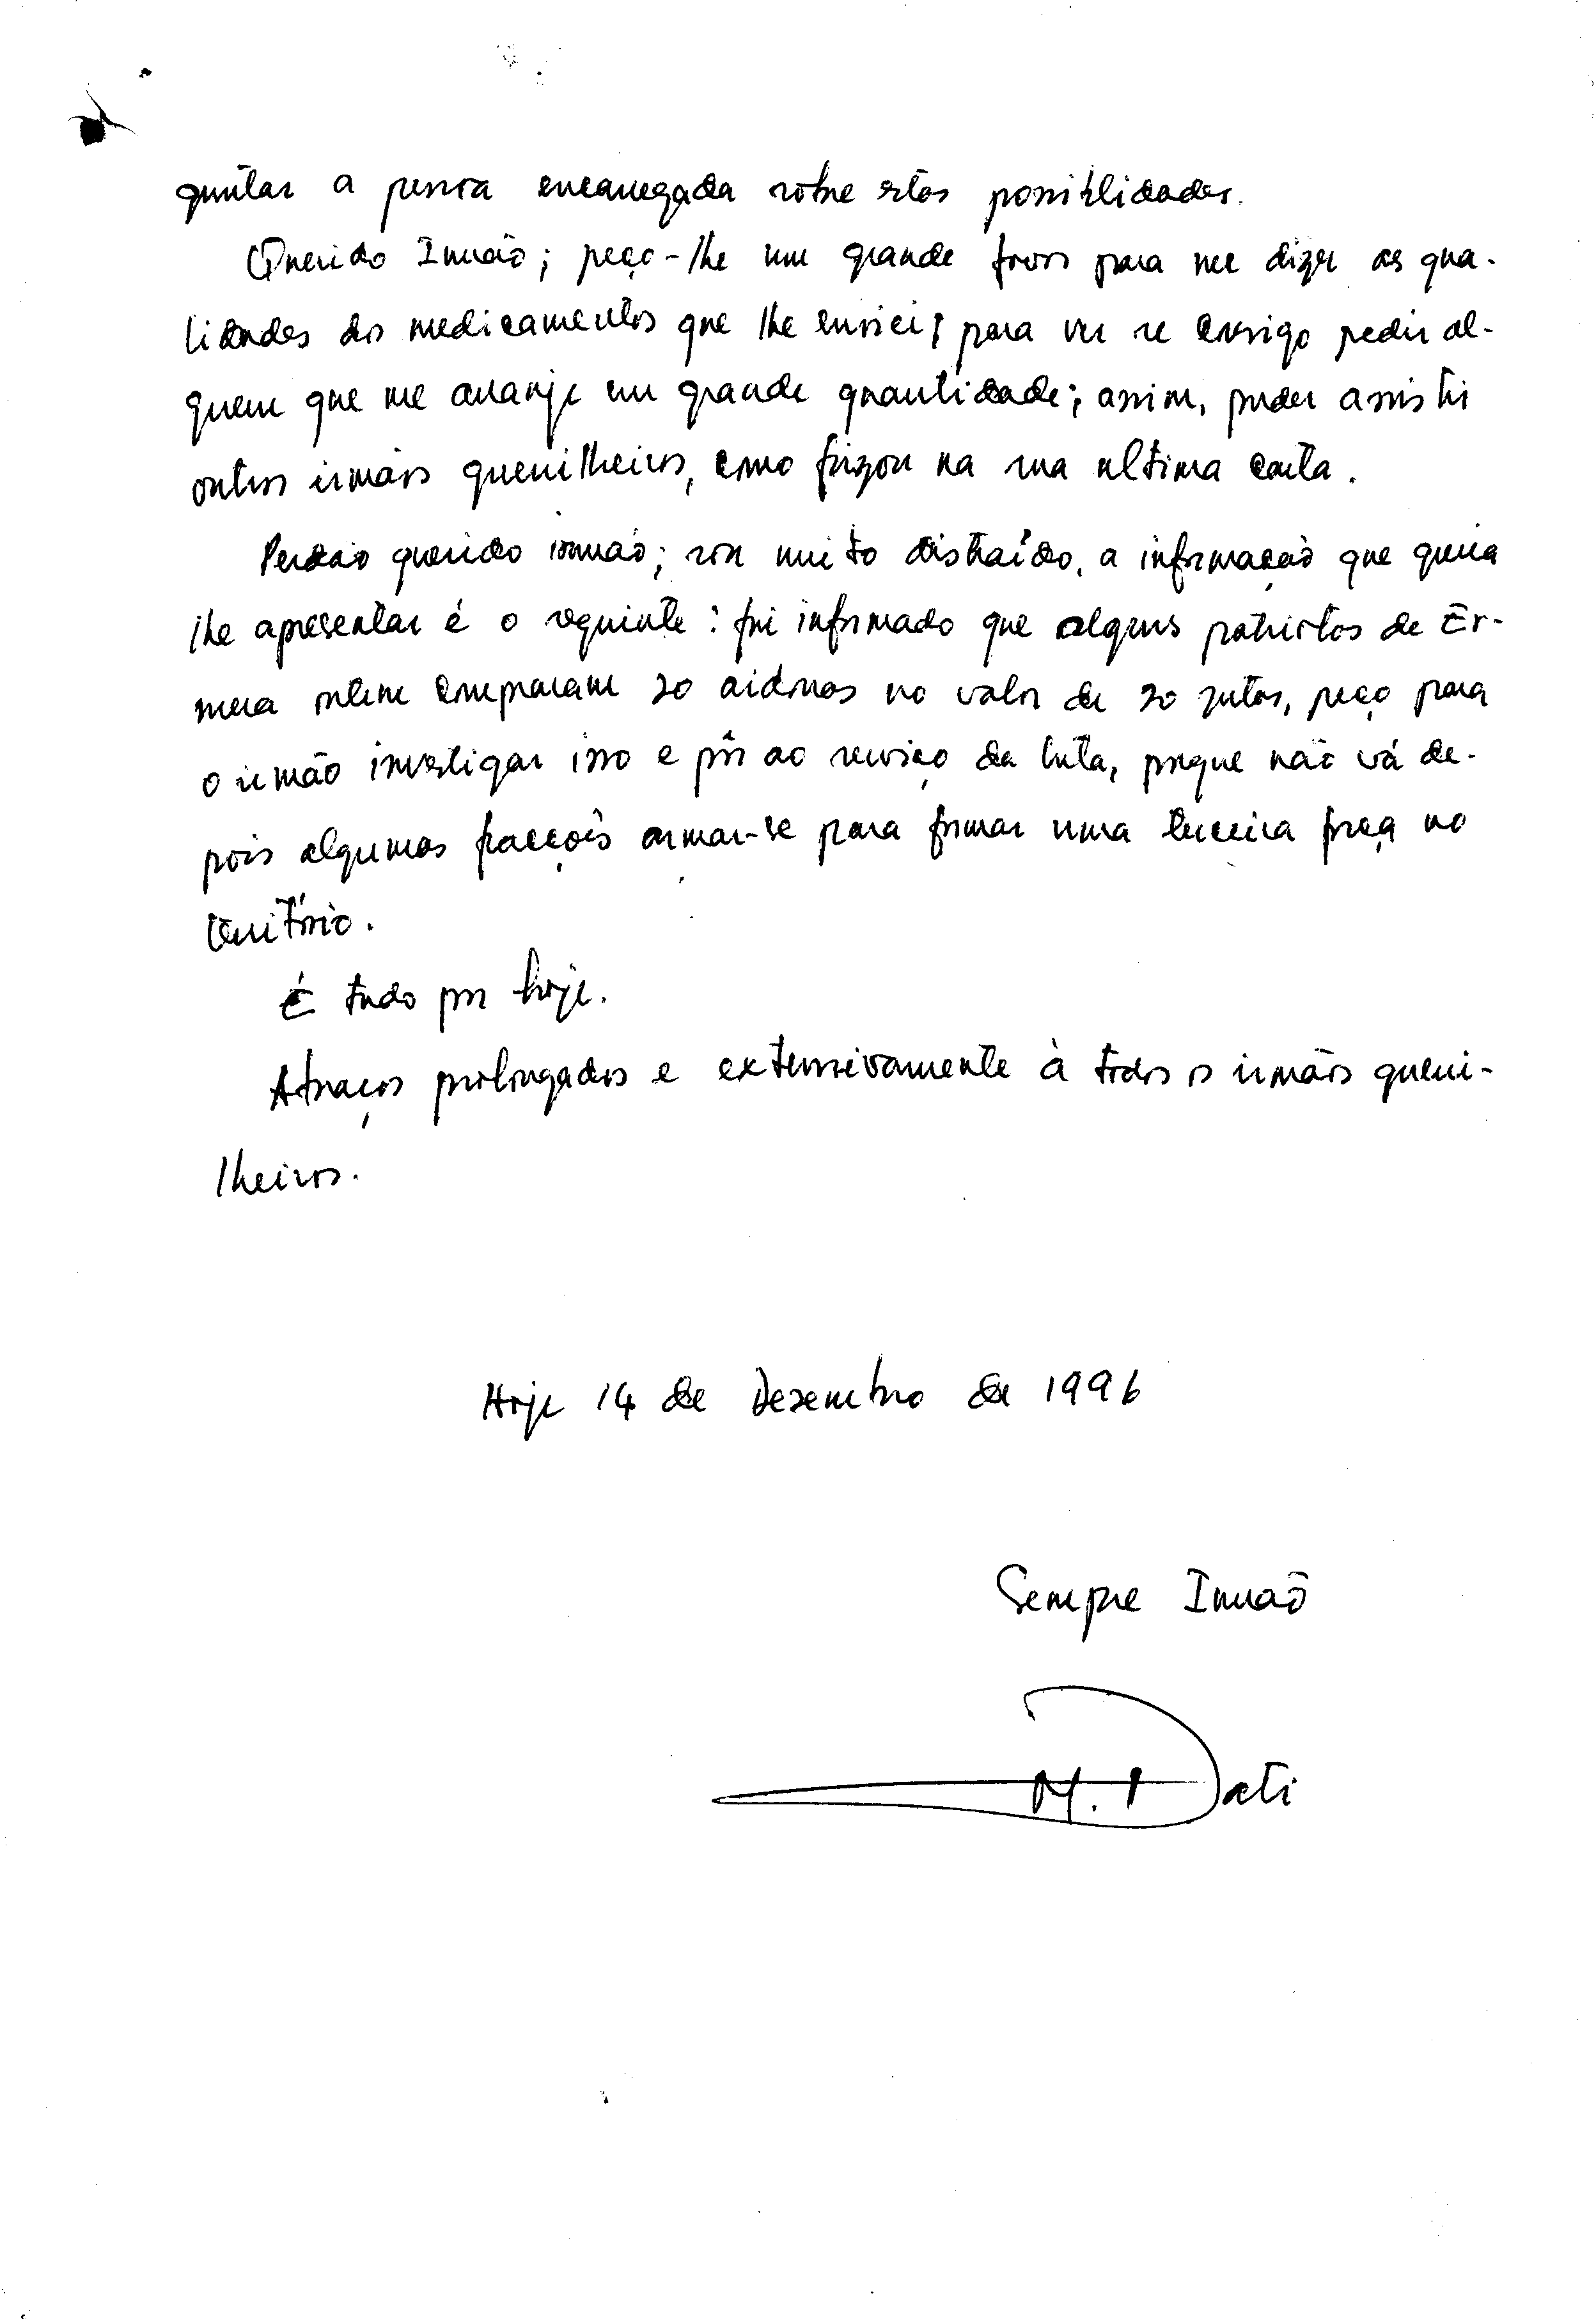 guntar a pessoa encarregada sobre estas possiblidades.
Querido Irmão; peço-lhe um grande favor para me dizer as qua-
lidades dos medicamentos que lhe enviei, para ver se consigo pedir al-
guem que me arranje em grande quantidade; assim, poder assistir
outros irmãos guerrilheiros, como frizou na sua ultima carta.
Perdão querido irmão; sou muito distraído, a informação que queria
lhe apresentar é o seguinte: fui informado que alguns patriotas de Er-
mera compraram 20 no valor de 20 jutas, peço para
o irmão investigar isso e pôr ao serviço da luta, porque não vá de-
pois algumas facções armar-se para formar uma terceira força no
território.
É tudo por hoje.
Abraços prolongados e extensivamente à todos os irmãos guerri-
lheiros.
Hoje 14 de Dezembro de 1996
Sempre Irmão
Dati